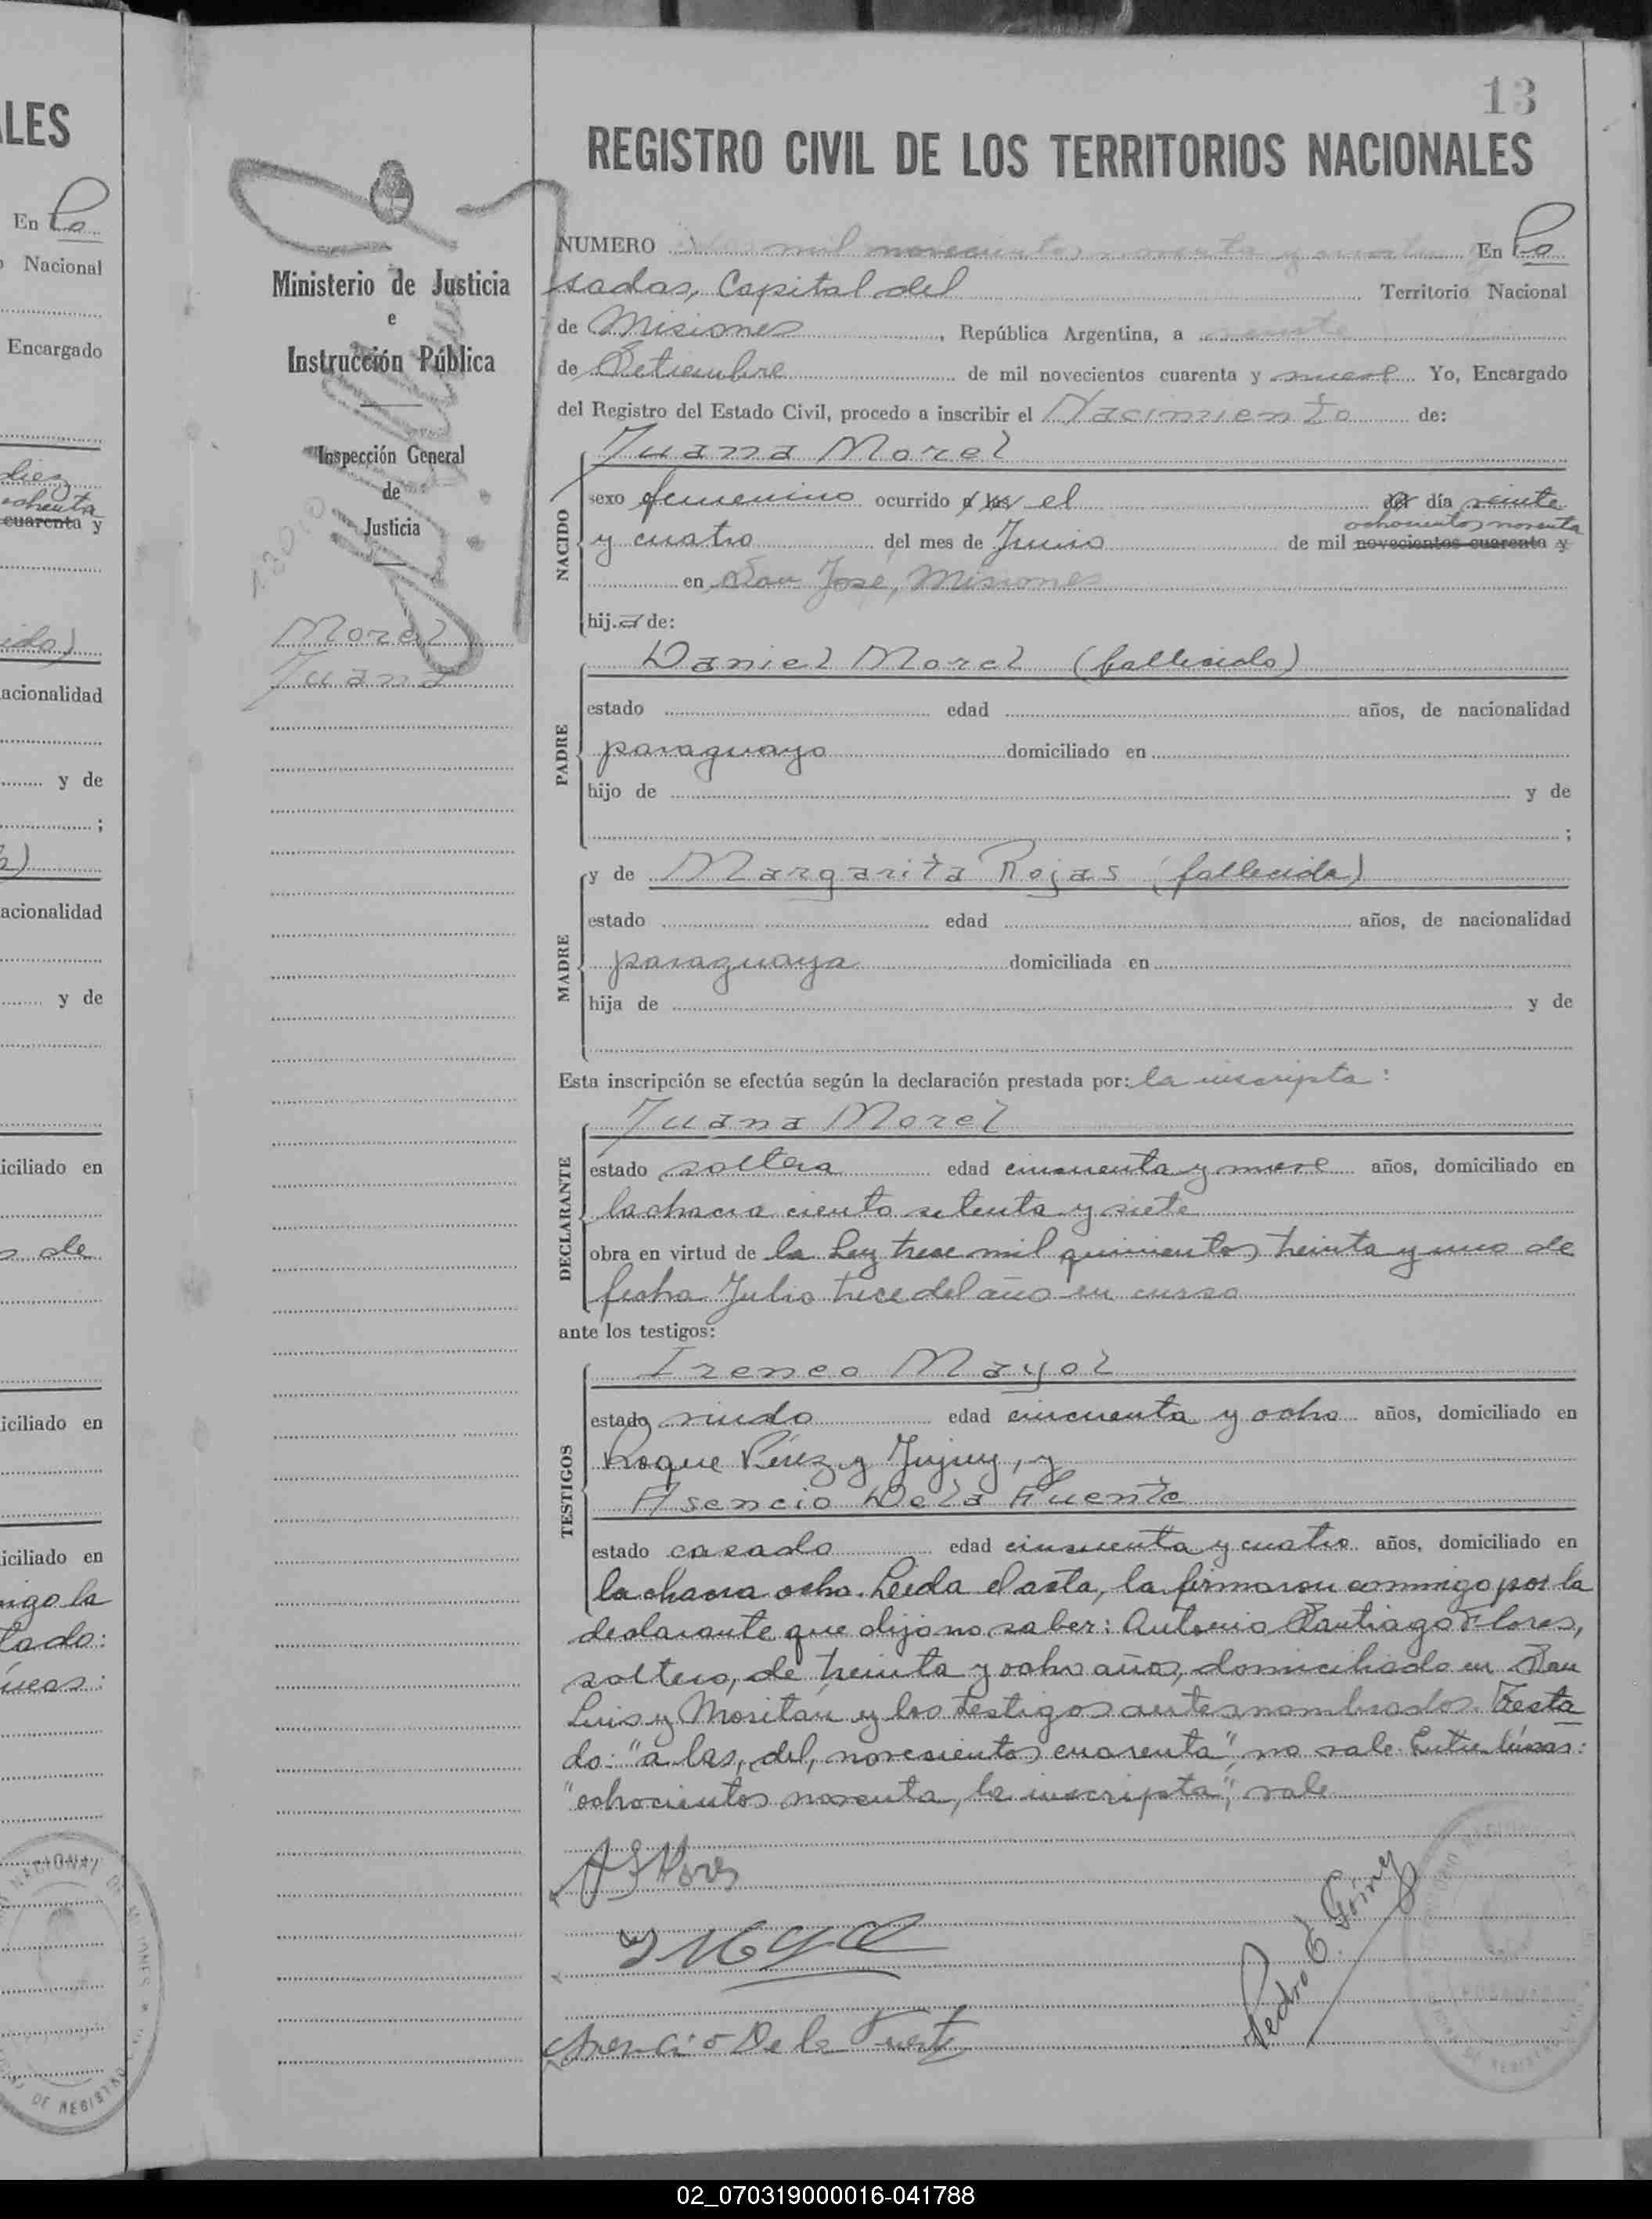 LES
En Po
Nacional
Encargado
diez
ochenta
cuarenta y
ido)
acionalidad
y de
;
acionalidad
y de
iciliado en
de
iciliado en
iciliado en
migo la
tado:
íneas:
Ministerio de Justicia
e
Instrucción Pública
Inspección General
de
Justicia
Morel
Juana
13
REGISTRO CIVIL DE LOS TERRITORIOS NACIONALES
NUMERO mil novecientos noventa y En Po
sadas, Capital del Territorio Nacional
de Misiones, República Argentina, a veinte
de Setiembre de mil novecientos cuarenta y nueve Yo, Encargado
del Registro del Estado Civil, procedo a inscribir el Nacimiento de:
NACIDO
Juana Morel
sexo femenino ocurrido a las el del día veinte
ochocientos noventa
y cuatro del mes de Junio de mil novecientos cuarenta y
en San José, Misiones
hija de:
PADRE
Daniel Morel (fallecido)
estado edad años, de nacionalidad
paraguayo domiciliado en
hijo de y de
;
MADRE
y de Margarita Rojas (fallecida)
estado edad años, de nacionalidad
paraguaya domiciliada en
hija de y de
Esta inscripción se efectúa según la declaración prestada por: la inscripta:
DECLARANTE
Juana Morel
estado soltera edad cincuenta y nueve años, domiciliado en
la chacra ciento setenta y siete
obra en virtud de la Ley trece mil quinientos treinta y uno de
fecha Julio trece del año en curso
ante los testigos:
TESTIGOS
Ireneo Mayol
estado viudo edad cincuenta y ocho años, domiciliado en
Roque Pérez y Jujuy, y
Asencio De la Fuente
estado casado edad cincuenta y cuatro años, domiciliado en
la chacra ocho. Leída el acta, la firmaron conmigo por la
declarante que dijo no saber: Antonio Santiago Flores,
soltero, de treinta y ocho años, domiciliado en San
Luis y Mositán y los testigos antes nombrados. Testa
do: "a las, del, novecientos cuarenta", no vale. Entre líneas:
"ochocientos noventa, la inscripta", vale
A S Flores
Asencio De la Fuente
Pedro E. Gómez
02_070319000016-041788